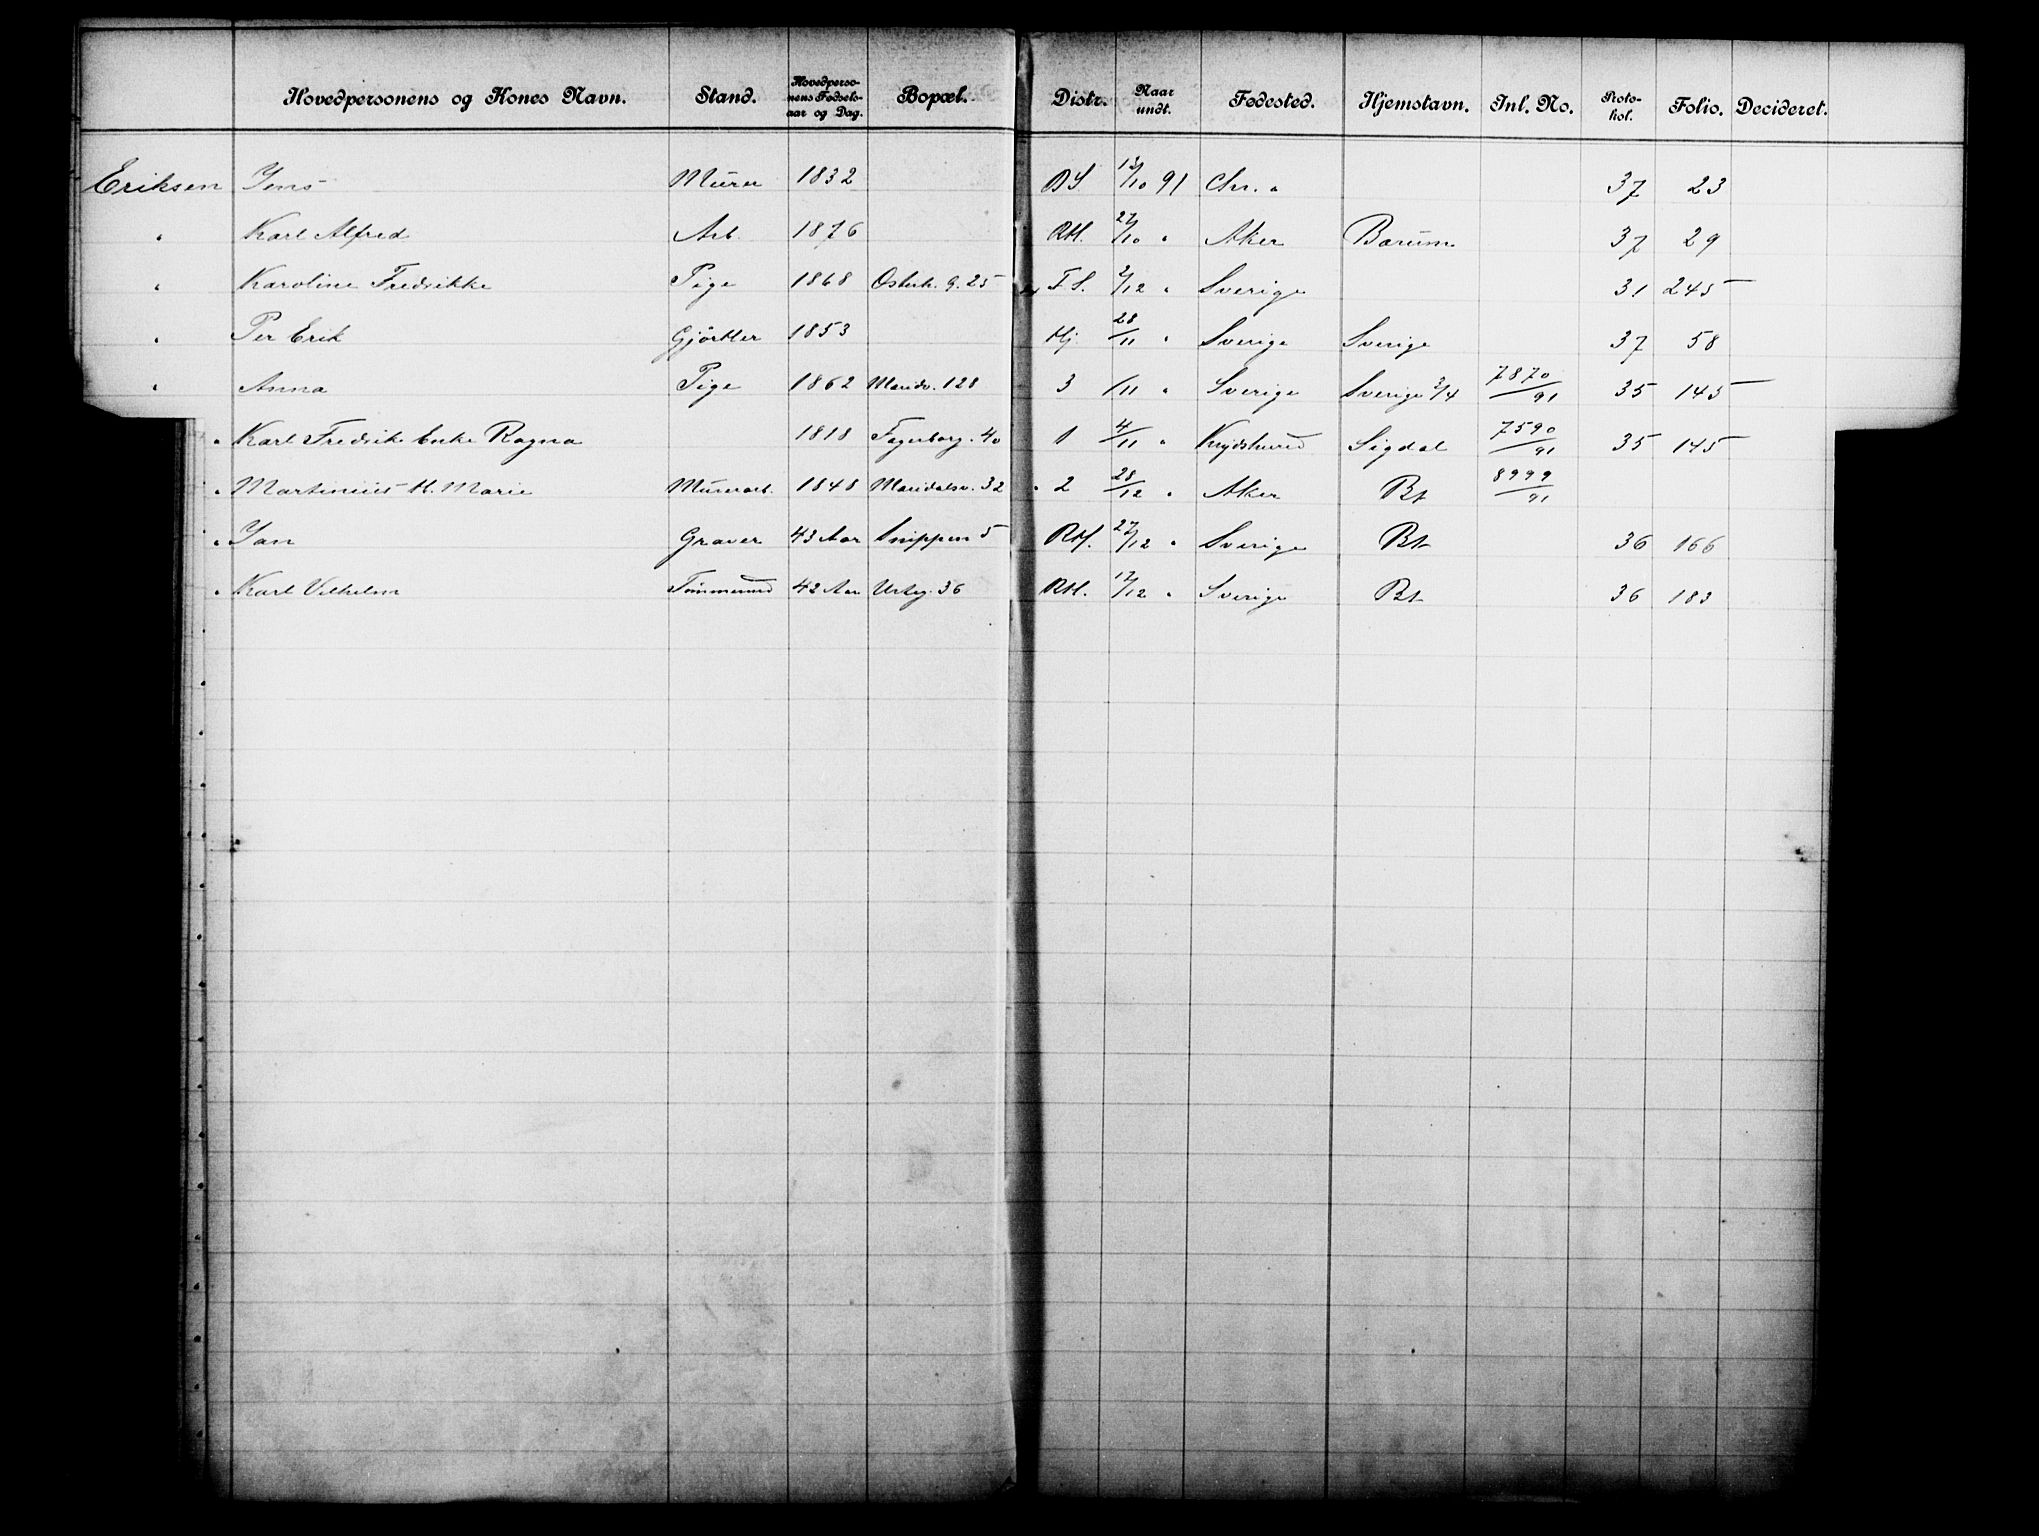 Hovedpersonens og Kones Navn. Stand. Hovedperso-nens Fødsels-aar og Dag. Bopæl. Distr. Naar undt. Fødested. Hjemstavn. Inl. No. Proto-kol. Folio. Decideret.
Eriksen Jens Murer 1832 13/10 91 Chr. " 37 23
" Karl Alfred Arb. 1876 RH. 27/10 " Aker Bærum 37 29
" Karoline Fredrikke Pige 1868 Osterh. g. 25 F S. 2/12 " Sverige 31 245
" Per Erik Gjørtler 1853 Hj. 28/11 " Sverige Sverige 37 58
" Anna Pige 1862 Maridv. 128 3 /11 " Sverige Sverige 2/4 7870/91 35 145
" Karl Fredrik Enke Ragna 1818 Fagerborg. 40 1 4/11 " Krydsherred Sigdal 7590/91 35 145
" Martinius H. Marie Murerarb. 1848 Maridalsv. 32 2 28/12 " Aker Bt 8999/91
" Jan Graver 43 Aar Snippen 5 RH. 27/12 " Sverige Bt 36 166
" Karl Vilhelm Tømmermd 42 Aar Urteg. 36 RH. 17/12 " Sverige Bt 36 183